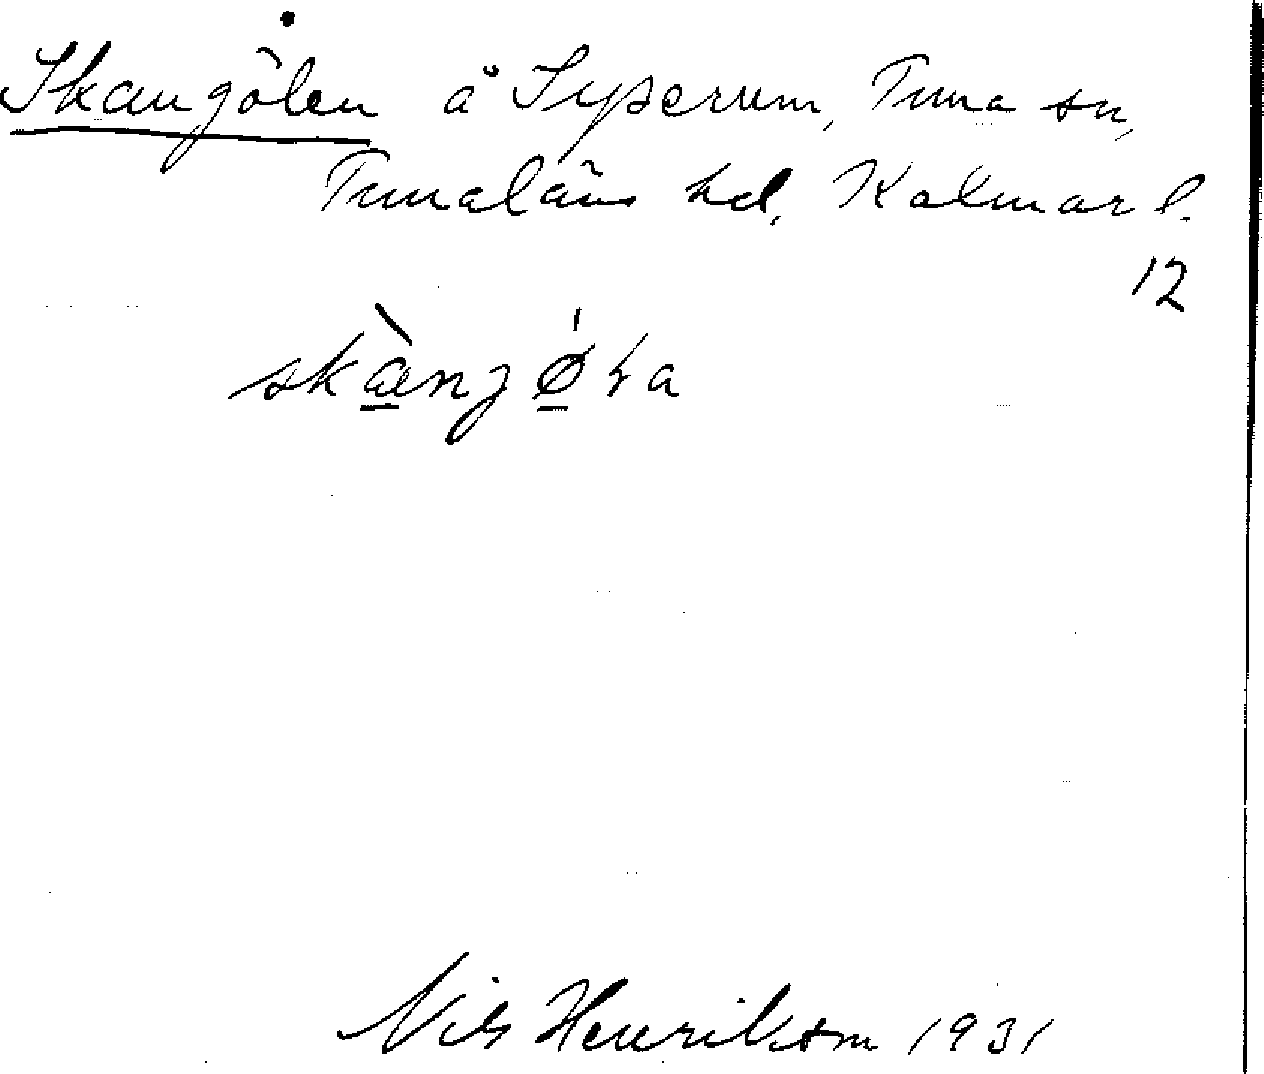 Skangölen å Syserum, Tuna sn,
Tunaläns hd. Kalmar l.
12
Nils Henrikson 1931